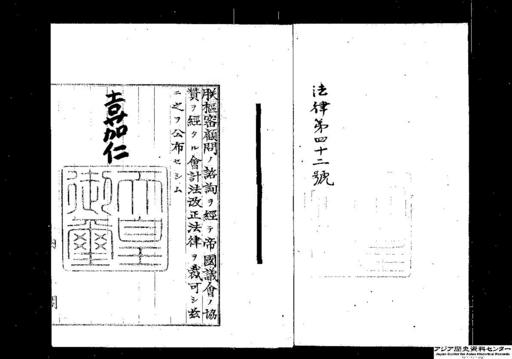 法律第四十二號
朕樞密顧問ノ諮詢ヲ經テ帝國議會ノ協
贊ヲ經タル會計法改正法律ヲ裁可シ玆
ニ之ヲ公布セシム
嘉仁
天皇
御璽
アジア歴史資料センター
Japan Center for Asian Historical Records